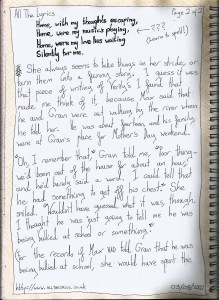 All The Lyrics
Page 2 of 2
Home, with my thoughts escaping,
Home, were my music's playing,
Home, were my love lies waiting
Silently for me.
← ???
She always seems to take things in her stride, or
turn them into a funny story. I guess it was
that piece of writing of Verity's I found that
made me think of it, because Max said that
he and Gran were out walking by the river when
he told her. He was about fourteen, and his family
were at Gran's house for Mother's Day weekend.
"Oh, I remember that," Gran told me, "for thing-
we'd been out of the house for about an hour,
and he'd barely said a word. I could tell that
he had something to get off his chest." She
smiled. "Wouldn't have guessed what it was, though.
I thought he was just going to tell me he was
being bullied at school or something."
(For the records of Max had told Gran that he was
being bullied at school, she would have spent the